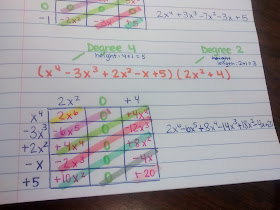 0
-1 -2x²
2x⁴ + 3x³ - 7x² - 3x + 5
Degree 4 Degree 2
height: 4+1=5 height: 2+1=3
(x⁴ - 3x³ + 2x² - x + 5)(2x² + 4)
2x² 0 +4
x⁴ 2x⁶ 0 +4x⁴
-3x³ -6x⁵ -12x³
+2x² +4x⁴ +8x²
-x -2x³ -4x
+5 +10x² +20
2x⁶ - 6x⁵ + 8x⁴ - 14x³ + 18x² - 4x + 20